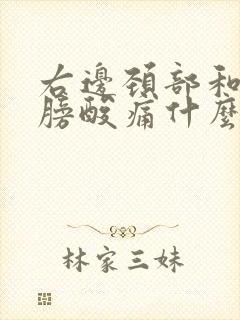 右邊頚部和
膀酸痛什麼
林家三妹